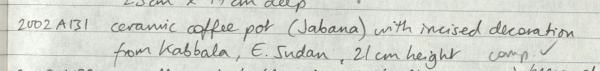 2002 A131 ceramic coffee pot (Jabana) with incised decoration
from Kabbala, E. Sudan, 21cm height comp ✓